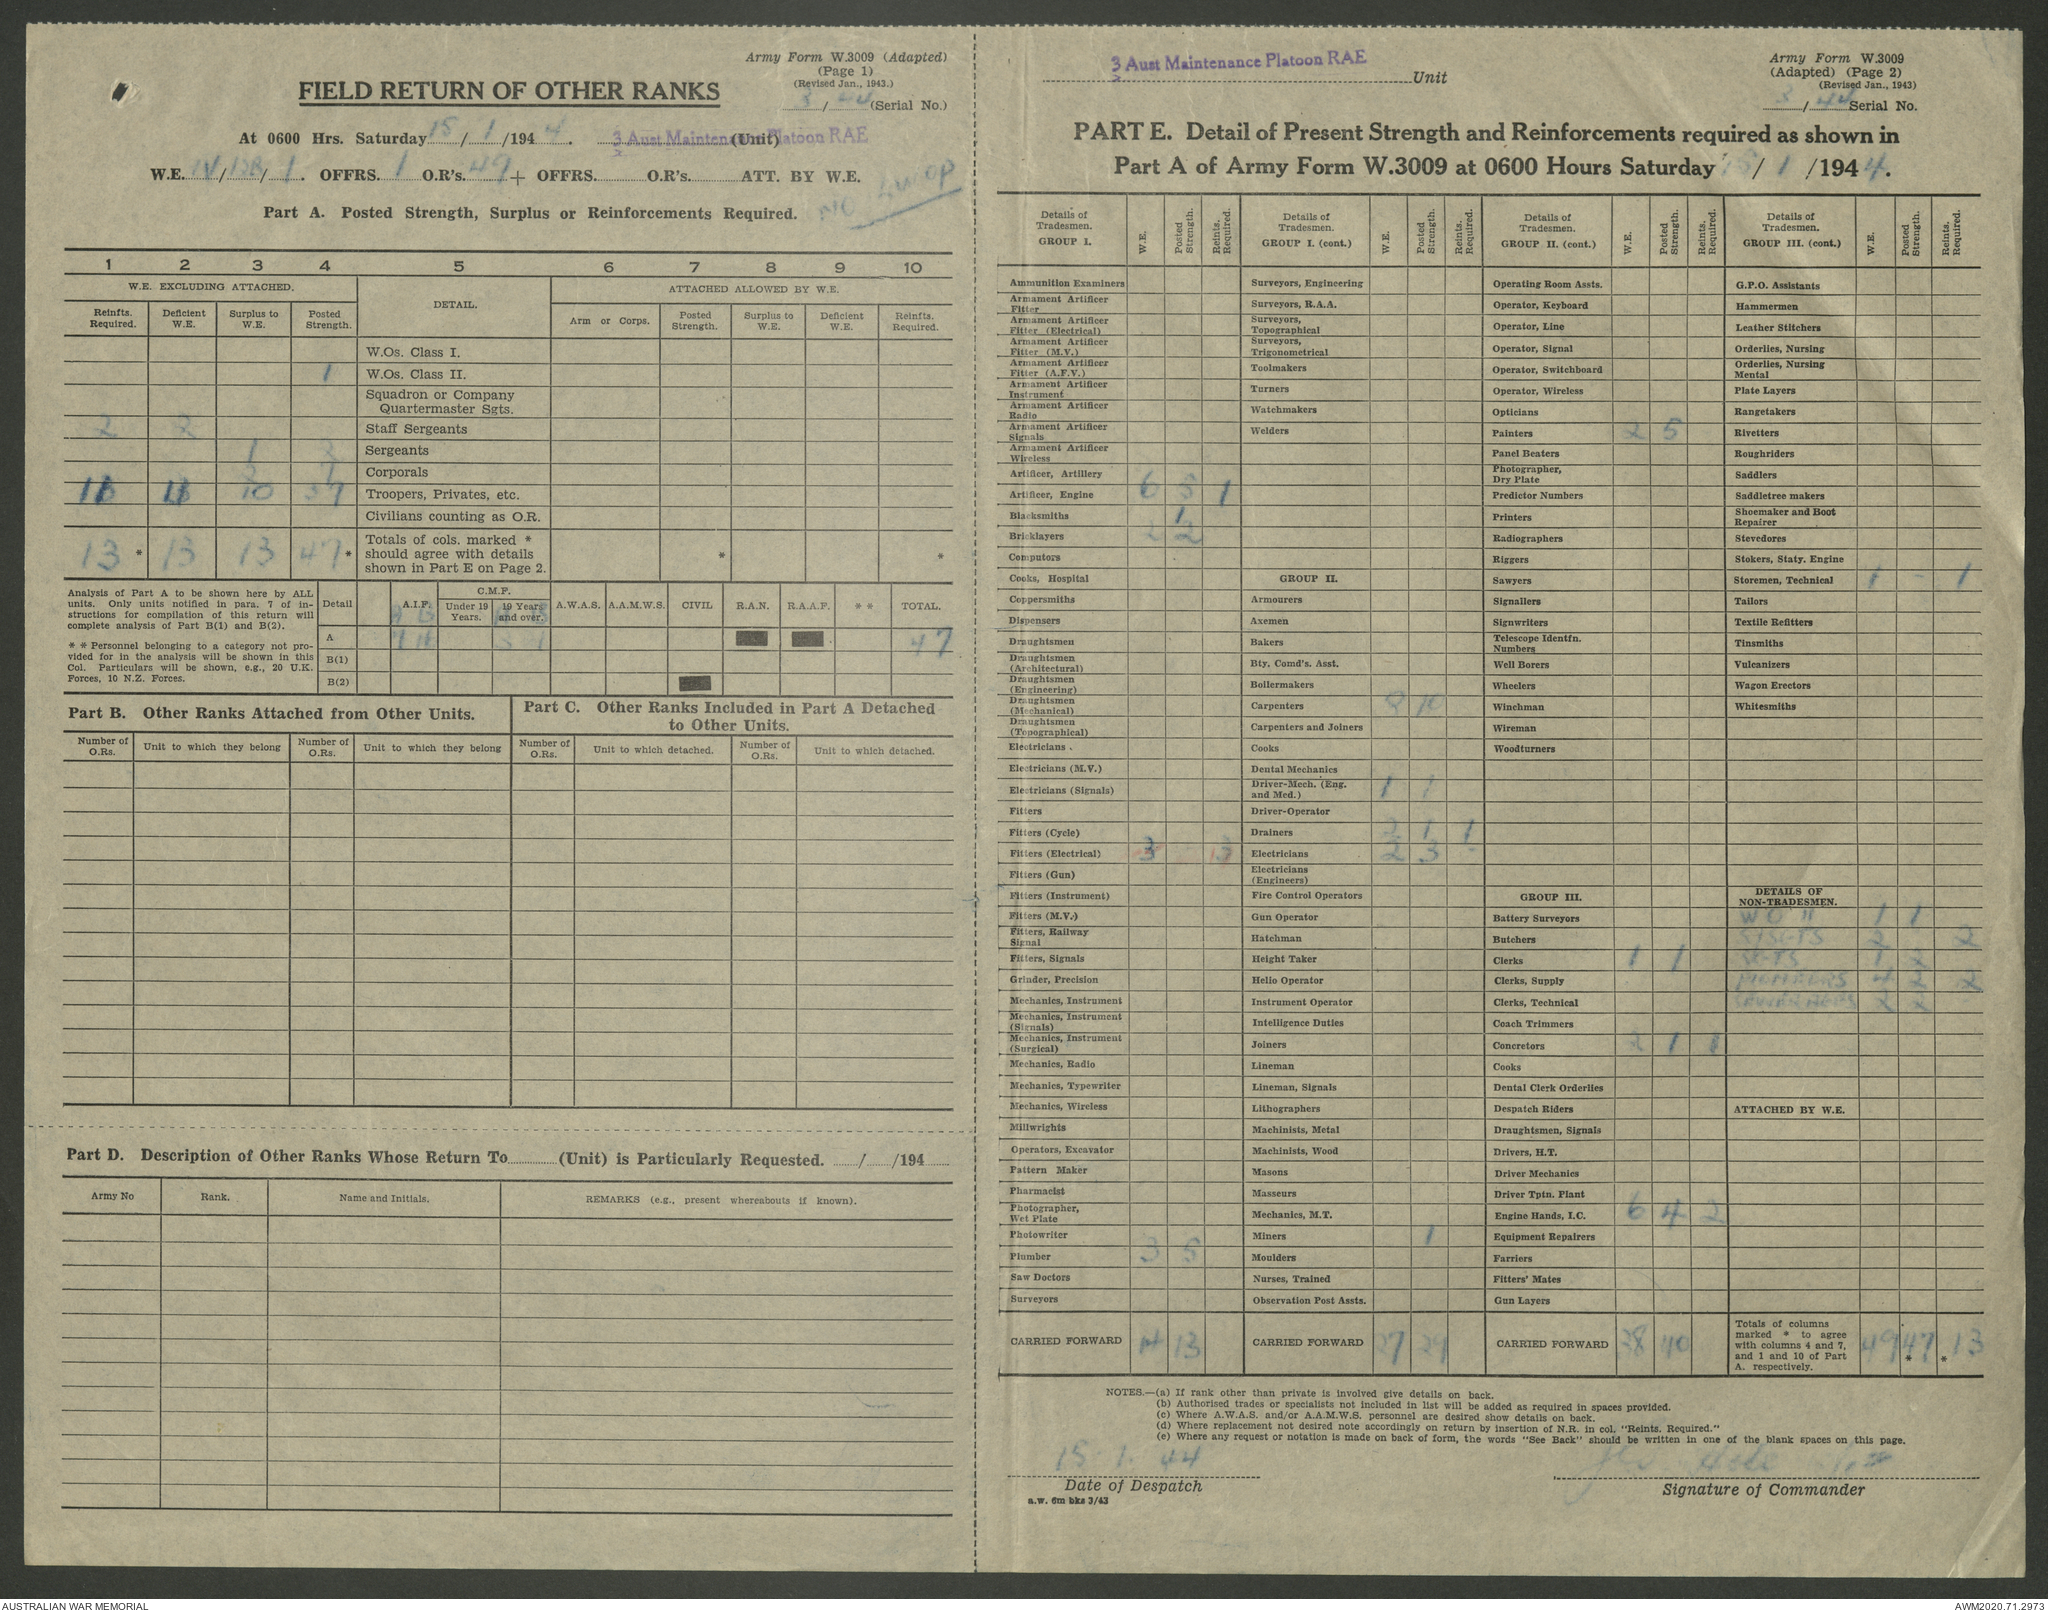 Army Form W.3009 (Adapted)
(Page 1)
(Revised Jan., 1943.)
3/44 (Serial No.)
FIELD RETURN OF OTHER RANKS
At 0600 Hrs. Saturday 15/1/1944. 3 Aust Maintenance Platoon RAE (Unit)
W.E. IV/12B/1. OFFRS. 1 O.R's. 49 + OFFRS. O.R's. ATT. BY W.E.
Part A. Posted Strength, Surplus or Reinforcements Required.
1 2 3 4 5 6 7 8 9 10
W.E. EXCLUDING ATTACHED. DETAIL. ATTACHED ALLOWED BY W.E.
Reinfts. Required. Deficient W.E. Surplus to W.E. Posted Strength. Arm or Corps. Posted Strength. Surplus to W.E. Deficient W.E. Reinfts. Required.
W.Os. Class I.
1 W.Os. Class II.
Squadron or Company
Quartermaster Sgts.
2 2 Staff Sergeants
1 Sergeants
Corporals
10 37 Troopers, Privates, etc.
Civilians counting as O.R.
13 * 13 13 47 * Totals of cols. marked *
should agree with details
shown in Part E on Page 2. * *
Analysis of Part A to be shown here by ALL
units. Only units notified in para. 7 of in-
structions for compilation of this return will
complete analysis of Part B(1) and B(2).
* * Personnel belonging to a category not pro-
vided for in the analysis will be shown in this
Col. Particulars will be shown, e.g., 20 U.K.
Forces, 10 N.Z. Forces.
Detail A.I.F. C.M.F. Under 19 Years. 19 Years and over. A.W.A.S. A.A.M.W.S. CIVIL R.A.N. R.A.A.F. * * TOTAL.
A 47
B(1)
B(2)
Part B. Other Ranks Attached from Other Units.
Number of O.Rs. Unit to which they belong Number of O.Rs. Unit to which they belong
Part C. Other Ranks Included in Part A Detached
to Other Units.
Number of O.Rs. Unit to which detached. Number of O.Rs. Unit to which detached.
Part D. Description of Other Ranks Whose Return To (Unit) is Particularly Requested. / /194
Army No Rank. Name and Initials. REMARKS (e.g., present whereabouts if known).
3 Aust Maintenance Platoon RAE Unit
Army Form W.3009
(Adapted) (Page 2)
(Revised Jan., 1943)
3/44 Serial No.
PART E. Detail of Present Strength and Reinforcements required as shown in
Part A of Army Form W.3009 at 0600 Hours Saturday 15/1/1944.
Details of Tradesmen. GROUP I. W.E. Posted Strength. Reints. Required.
Ammunition Examiners
Armament Artificer Fitter
Armament Artificer Fitter (Electrical)
Armament Artificer Fitter (M.V.)
Armament Artificer Fitter (A.F.V.)
Armament Artificer Instrument
Armament Artificer Radio
Armament Artificer Signals
Armament Artificer Wireless
Artificer, Artillery
Artificer, Engine 6 5 1
Blacksmiths 1
Bricklayers 2 2
Computors
Cooks, Hospital
Coppersmiths
Dispensers
Draughtsmen
Draughtsmen (Architectural)
Draughtsmen (Engineering)
Draughtsmen (Mechanical)
Draughtsmen (Topographical)
Electricians
Electricians (M.V.)
Electricians (Signals)
Fitters
Fitters (Cycle)
Fitters (Electrical) 3 3
Fitters (Gun)
Fitters (Instrument)
Fitters (M.V.)
Fitters, Railway Signal
Fitters, Signals
Grinder, Precision
Mechanics, Instrument
Mechanics, Instrument (Signals)
Mechanics, Instrument (Surgical)
Mechanics, Radio
Mechanics, Typewriter
Mechanics, Wireless
Millwrights
Operators, Excavator
Pattern Maker
Pharmacist
Photographer, Wet Plate
Photowriter
Plumber 3 5
Saw Doctors
Surveyors
CARRIED FORWARD 14 13
Details of Tradesmen. GROUP I. (cont.) W.E. Posted Strength. Reints. Required.
Surveyors, Engineering
Surveyors, R.A.A.
Surveyors, Topographical
Surveyors, Trigonometrical
Toolmakers
Turners
Watchmakers
Welders
GROUP II.
Armourers
Axemen
Bakers
Bty. Comd's. Asst.
Boilermakers
Carpenters 8 10
Carpenters and Joiners
Cooks
Dental Mechanics
Driver-Mech. (Eng. and Med.) 1 1
Driver-Operator
Drainers 2 1 1
Electricians 2 3 -
Electricians (Engineers)
Fire Control Operators
Gun Operator
Hatchman
Height Taker
Helio Operator
Instrument Operator
Intelligence Duties
Joiners
Lineman
Lineman, Signals
Lithographers
Machinists, Metal
Machinists, Wood
Masons
Masseurs
Mechanics, M.T.
Miners 1
Moulders
Nurses, Trained
Observation Post Assts.
CARRIED FORWARD 27 29
Details of Tradesmen. GROUP II. (cont.) W.E. Posted Strength. Reints. Required.
Operating Room Assts.
Operator, Keyboard
Operator, Line
Operator, Signal
Operator, Switchboard
Operator, Wireless
Opticians
Painters 2 5
Panel Beaters
Photographer, Dry Plate
Predictor Numbers
Printers
Radiographers
Riggers
Sawyers
Signallers
Signwriters
Telescope Identfn. Numbers
Well Borers
Wheelers
Winchman
Wireman
Woodturners
GROUP III.
Battery Surveyors
Butchers
Clerks 1 1
Clerks, Supply
Clerks, Technical
Coach Trimmers
Concretors 2 1 1
Cooks
Dental Clerk Orderlies
Despatch Riders
Draughtsmen, Signals
Drivers, H.T.
Driver Mechanics
Driver Tptn. Plant
Engine Hands, I.C. 6 4 2
Equipment Repairers
Farriers
Fitters' Mates
Gun Layers
CARRIED FORWARD 38 40
Details of Tradesmen. GROUP III. (cont.) W.E. Posted Strength. Reints. Required.
G.P.O. Assistants
Hammermen
Leather Stitchers
Orderlies, Nursing
Orderlies, Nursing Mental
Plate Layers
Rangetakers
Rivetters
Roughriders
Saddlers
Saddletree makers
Shoemaker and Boot Repairer
Stevedores
Stokers, Staty. Engine
Storemen, Technical 1 - 1
Tailors
Textile Refitters
Tinsmiths
Vulcanizers
Wagon Erectors
Whitesmiths
DETAILS OF NON-TRADESMEN.
W O II 1 1
S/SGTS 2 2
SGTS 1 2
4 2 2
2 2
ATTACHED BY W.E.
Totals of columns
marked * to agree
with columns 4 and 7,
and 1 and 10 of Part
A. respectively. 49 47 * * 13
NOTES.—(a) If rank other than private is involved give details on back.
(b) Authorised trades or specialists not included in list will be added as required in spaces provided.
(c) Where A.W.A.S. and/or A.A.M.W.S. personnel are desired show details on back.
(d) Where replacement not desired note accordingly on return by insertion of N.R. in col. "Reints. Required."
(e) Where any request or notation is made on back of form, the words "See Back" should be written in one of the blank spaces on this page.
15 1. 44
Date of Despatch
Signature of Commander
a.w. 6m bks 3/43
AUSTRALIAN WAR MEMORIAL
AWM2020.71.2973